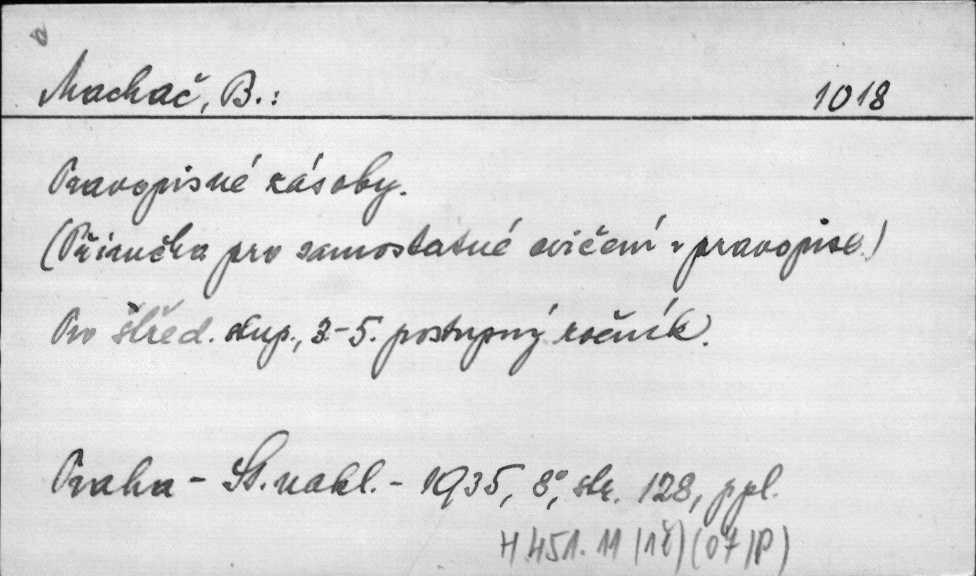 Machač, B.: 1018
Pravopisné zásoby.
(Příručka pro samostatné cvičení v pravopise.)
Pro střed. stup., 3.-5. postupný ročník.
Praha - St. nakl. - 1935, 8°, str. 128, ppl.
H 451.11 (1č) (07)(P)